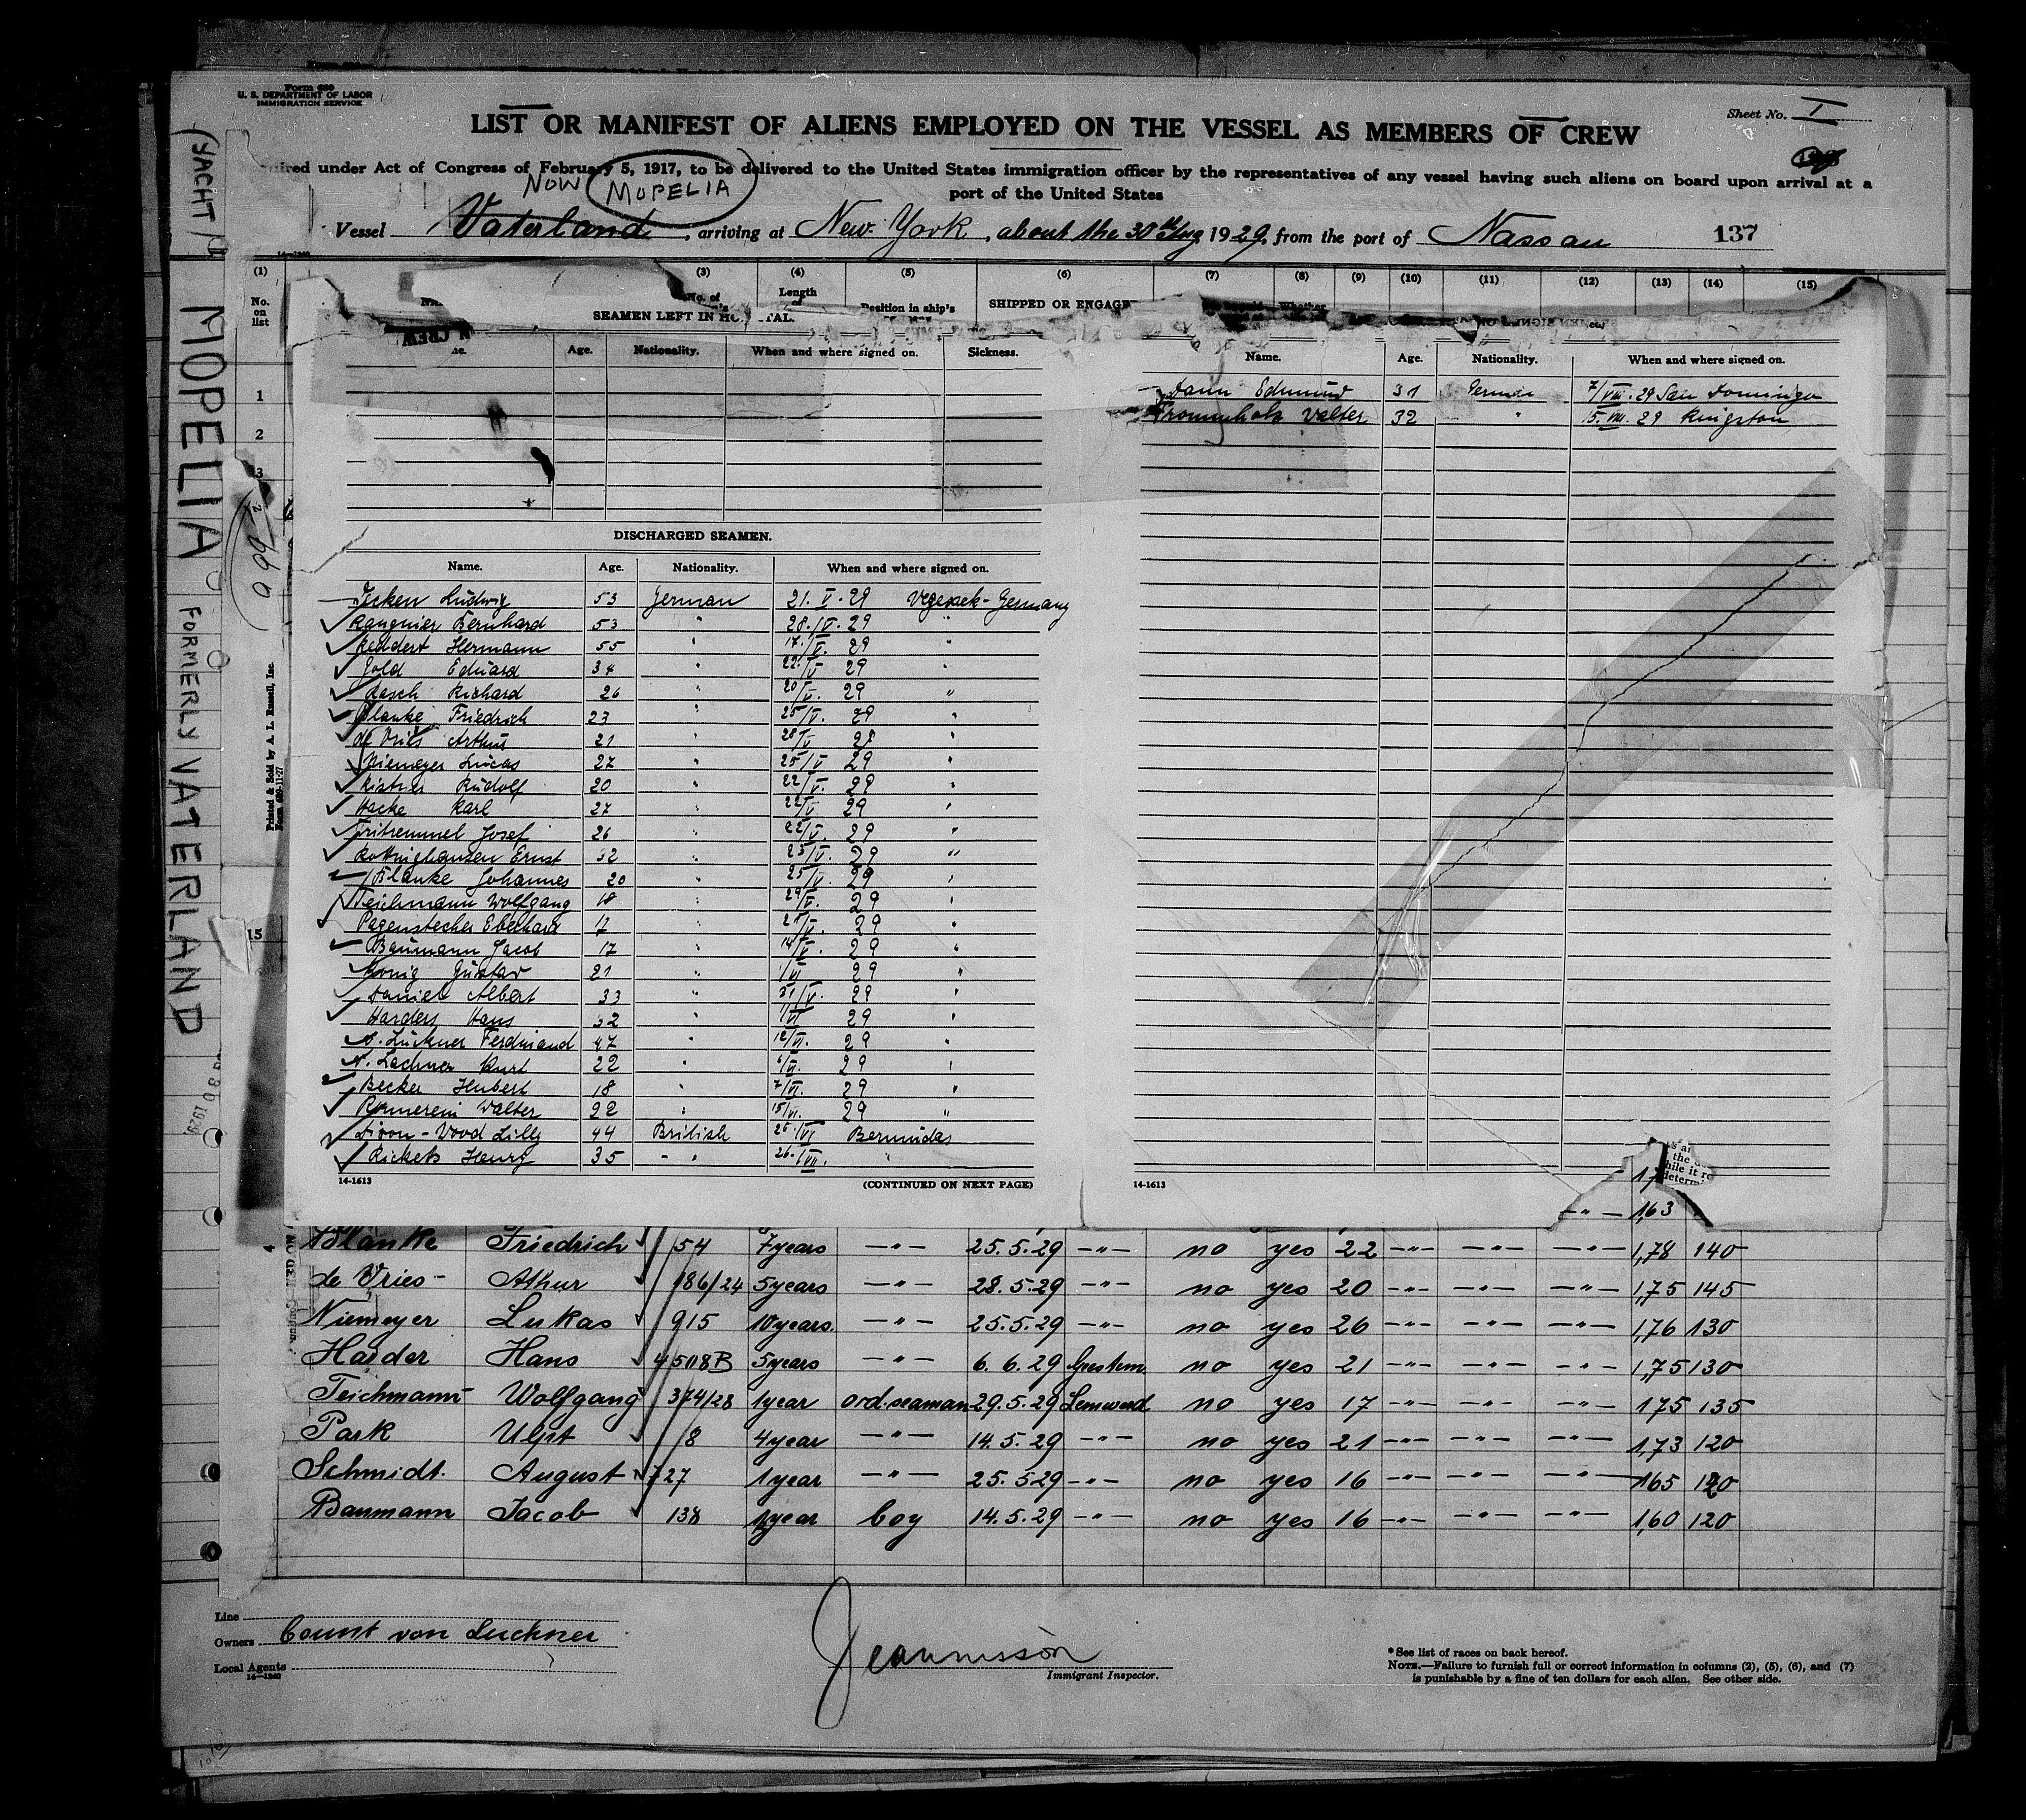 Form 680
U. S. DEPARTMENT OF LABOR
IMMIGRATION SERVICE
Sheet No. I
LIST OR MANIFEST OF ALIENS EMPLOYED ON THE VESSEL AS MEMBERS OF CREW
uired under Act of Congress of February 5, 1917, to be delivered to the United States immigration officer by the representatives of any vessel having such aliens on board upon arrival at a
port of the United States
NOW MOPELIA
Vessel Vaterland, arriving at New York, about the 30th Aug 1929, from the port of Nassau 137
(YACHT)
MOPELIA FORMERLY VATERLAND
14-1240
(1) (3) (4) (5) (6) (7) (8) (9) (10) (11) (12) (13) (14) (15)
No. on list
No. of
Length of
Position in ship's
SHIPPED OR ENGAGE
Whether
1
2
3
15
Printed & Sold by A. L. Russell, Inc.
Form 689-11-27
SEAMEN LEFT IN HO TAL.
CREW
Age. Nationality. When and where signed on. Sickness.
DISCHARGED SEAMEN.
Name. Age. Nationality. When and where signed on.
Ludwig 53 German 21. V. 29 Vegesack - Germany
Bernhard 53 " 28./V. 29 "
Reddert Hermann 55 " 17./V. 29 "
Gold Eduard 34 " 22./V 29 "
Rasch Richard 26 " 20/V. 29 "
Blanke Friedrich 23 " 25/V. 29 "
de Vries Arthur 21 " 28/V "
Niemeyer Lucas 27 " 25/V 29 "
Rudolf 20 " 22/V. 29 "
Hacke Karl 27 " 22/V 29 "
Josef 26 " 22/V. 29 "
Ernst 32 " 23/V. 29 "
Blanke Johannes 20 " 25/V. 29 "
Teichmann Wolfgang 18 " 29/V. 29 "
Pagenstecher Eberhard 17 " /V. 29 "
Baumann Jacob 17 " 14/V. 29 "
König Gustav 21 " 1/VI 29 "
Daniel Albert 33 " 31/V. 29 "
Harders Hans 32 " 1/VI 29 "
v. Luckner Ferdinand 47 " 12/VI. 29 "
v. Lachner Kurt 22 " /VI. 29 "
Becker Hubert 18 " 7/VI. 29 "
Walter 22 " 15/VI. 29 "
Dixon-Wood Lilly 44 British 26./VI Bermudas
Rickets Henry 35 - " 26./VII. "
14-1613 (CONTINUED ON NEXT PAGE)
Name. Age. Nationality. When and where signed on.
Dann Edmund 31 German 7/VIII. 29 San Domingo
Frommholz Valter 32 " 15. VIII. 29 Kingston
14-1613
17
1,63
Blanke Friedrich 154 7years -"- 25.5.29 -"- no yes 22 -"- -"- -"- 1,78 140
de Vries Athur 186/24 5years -"- 28.5.29 -"- no yes 20 -"- -"- -"- 1,75 145
Niemeyer Lukas 915 10years. -"- 25.5.29 -"- no yes 26 -"- -"- -"- 1,76 130
Harder Hans 4508B 5years -"- 6.6.29 Geestem. no yes 21 -"- -"- -"- 1,75 130
Teichmann Wolfgang 374/28 1year ord. seaman 29.5.29 Lemwerd no yes 17 -"- -"- -"- 175 135
Park 18 4year -"- 14.5.29 -"- no yes 21 -"- -"- -"- 1,73 120
Schmidt. August 727 1year -"- 25.5.29 -"- no yes 16 -"- -"- -"- 165 120
Baumann Jacob 138 1year boy 14.5.29 -"- no yes 16 -"- -"- -"- 1,60 120
Line
Owners Count von Luckner
Local Agents
14-1240
Immigrant Inspector.
*See list of races on back hereof.
NOTE.—Failure to furnish full or correct information in columns (2), (5), (6), and (7)
is punishable by a fine of ten dollars for each alien. See other side.